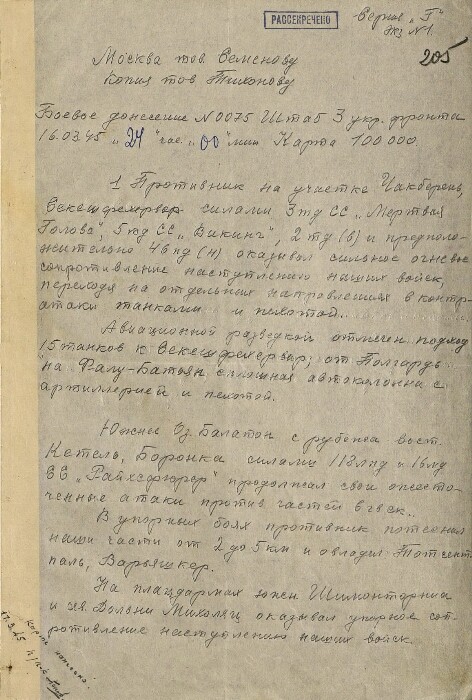 РАССЕКРЕЧЕНО
Серия „Г“
Экз N1.
205
Москва тов Семенову
Копия тов Тихонову
Боевое донесение N0075 Штаб 3 укр. фронта
16.03.45 „24“ час. „00“ мин Карта 100 000.
1 Противник на участке Чакберень,
Секешфехервар силами 3 тд СС „Мертвая
Голова“, 5 тд СС „Викинг“, 2 тд (в) и предполо-
жительно 46 пд (н) оказывал сильное огневое
сопротивление наступлению наших войск,
переходя на отдельных направлениях в контр-
атаки танками и пехотой..
Авиационной разведкой отмечен подход
15 танков к Секешфехервар; от Полгарди
на Фалу-Батьян сплошная автоколонна с
артиллерией и пехотой.
Южнее Оз. Балатон с рубежа вост.
Кетель, Боронка силами 118 лпд и 16 мд
СС „Райхсфюрер“ продолжал свои ожесто-
ченные атаки против частей 6 гвск..
В упорных боях противник потеснил
наши части от 2 до 5 км и овладел Тотсент-
паль, Варьяшкер.
На плацдармах южн Шимонторниа
и св. Долони Михоляц оказывал упорное соп-
ротивление наступлению наших войск.
17.3.45